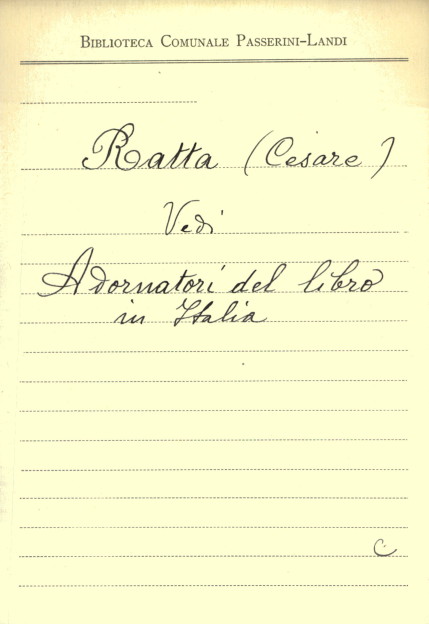 BIBLIOTECA COMUNALE PASSERINI-LANDI
Ratta (Cesare)
Vedi
Adornatori del libro
in Italia
C.